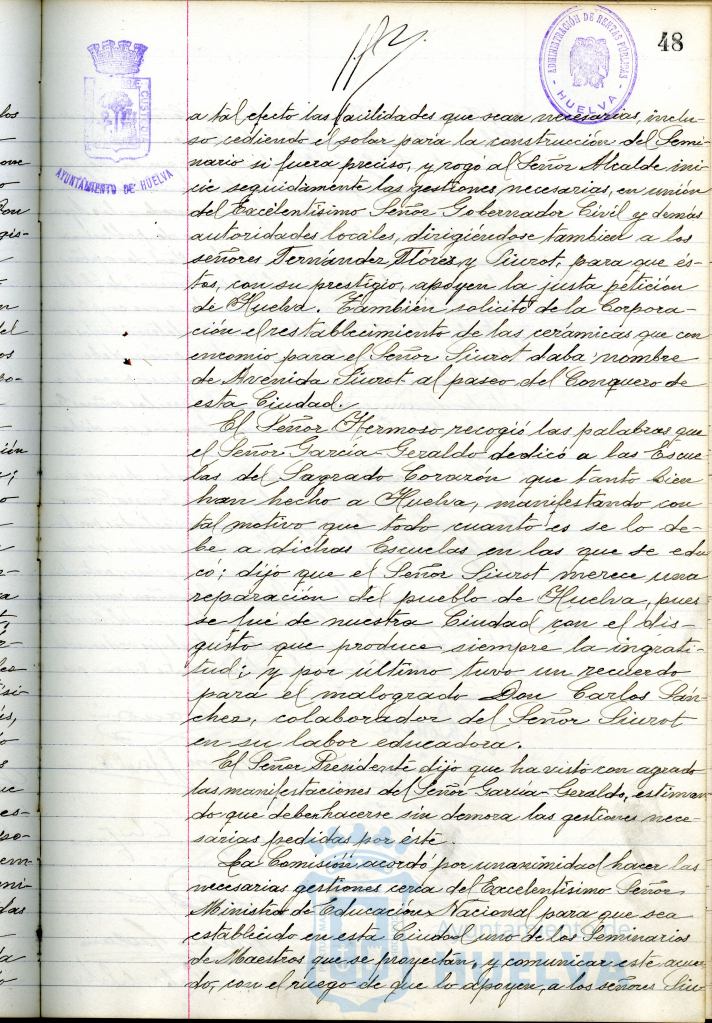 48
ADMINISTRACIÓN DE RENTAS PÚBLICAS
HUELVA
AYUNTAMIENTO DE HUELVA
a tal efecto las facilidades que sean necesarias, inclu-
so cediendo el solar para la construcción del Semi-
nario si fuera preciso, y rogó al Señor Alcalde ini-
cie seguidamente las gestiones necesarias, en unión
del Excelentísimo Señor Gobernador Civil y demás
autoridades locales, dirigiéndose tambien a los
señores Fernández Flórez y Siurot, para que és-
tos, con su prestigio, apoyen la justa petición
de Huelva. También solicitó de la Corpora-
ción el restablecimiento de las cerámicas que con
encomio para el Señor Siurot daba nombre
de Avenida Siurot al paseo del Conquero de
esta Ciudad.
El Señor Hermoso recogió las palabras que
el Señor García-Geraldo dedicó a las Escue-
las del Sagrado Corazón que tanto bien
han hecho a Huelva, manifestando con
tal motivo que todo cuanto es se lo de-
be a dichas Escuelas en las que se edu-
có; dijo que el Señor Siurot merece una
reparación del pueblo de Huelva, pues
se fué de nuestra Ciudad con el dis-
gusto que produce siempre la ingrati-
tud; y por último tuvo un recuerdo
para el malogrado Don Carlos Sán-
chez, colaborador del Señor Siurot
en su labor educadora.
El Señor Presidente dijo que ha visto con agrado
las manifestaciones del Señor García-Geraldo, estiman-
do que deben hacerse sin demora las gestiones nece-
sarias pedidas por éste.
La Comisión acordó por unanimidad hacer las
necesarias gestiones cerca del Excelentísimo Señor
Ministro de Educación Nacional para que sea
establecido en esta Ciudad uno de los Seminarios
de Maestros que se proyectan, y comunicar este acuer-
do, con el ruego de que lo apoyen, a los señores Siu-
Ayuntamiento de
HUELVA